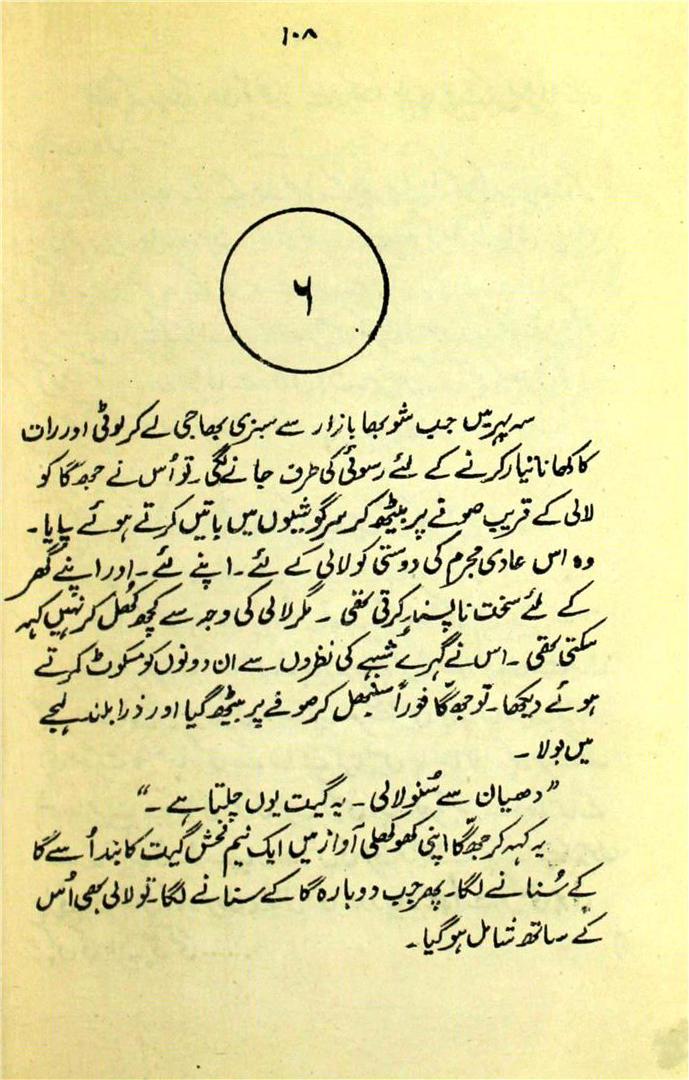 ۱۰۸
۶
سہ پہر میں جب شوبھا بازار سے سبزی بھاجی لے کر لوٹی اور رات
کا کھانا تیار کرنے کے لئے رسوئی کی طرف جانے لگی۔ تو اُس نے جھگا کو
لالی کے قریب صوفے پر بیٹھ کر سرگوشیوں میں باتیں کرتے ہوئے پایا۔
وہ اس عادی مجرم کی دوستی کو لالی کے لئے۔ اپنے لئے۔ اور اپنے گھر
کے لئے سخت ناپسند کرتی تھی۔ مگر لالی کی وجہ سے کچھ کُھل کر نہیں کہہ
سکتی تھی۔ اس نے گہرے شبہے کی نظروں سے ان دونوں کو سکوٹ کرتے
ہوئے دیکھا۔ تو جھگّا فوراً سنبھل کر صوفے پر بیٹھ گیا اور ذرا بلند لہجے
میں بولا۔
”دھیان سے سُنو لالی۔ یہ گیت یوں چلتا ہے۔“
یہ کہہ کر جھگّا اپنی کھوکھلی آواز میں ایک نیم فحش گیت کا بند اُسے گا
کے سُنانے لگا۔ پھر جب دوبارہ گا کے سنانے لگا۔ تو لالی بھی اُس
کے ساتھ شامل ہو گیا۔